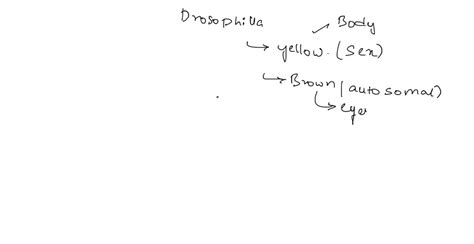 Drosophila
Body
yellow. (Sex)
Brown (autosomal)
eyes